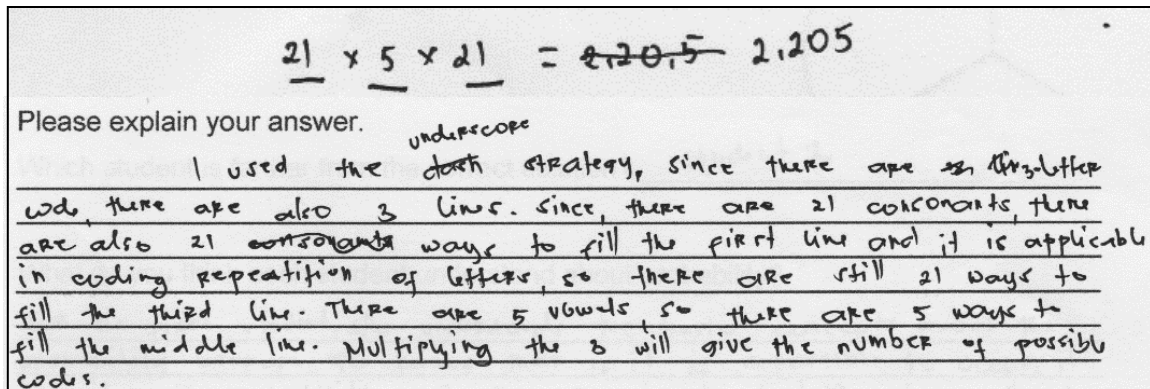 21 x 5 x 21 = 2,20,5 2,205
Please explain your answer.
underscore
I used the dash strategy, since there are three-letter
code, there are also 3 lines. Since, there are 21 consonants, there
are also 21 consonants ways to fill the first line and it is applicable
in coding repeatition of letters, so there are still 21 ways to
fill the third line. There are 5 vowels, so there are 5 ways to
fill the middle line. Multiplying the 3 will give the number of possible
codes.